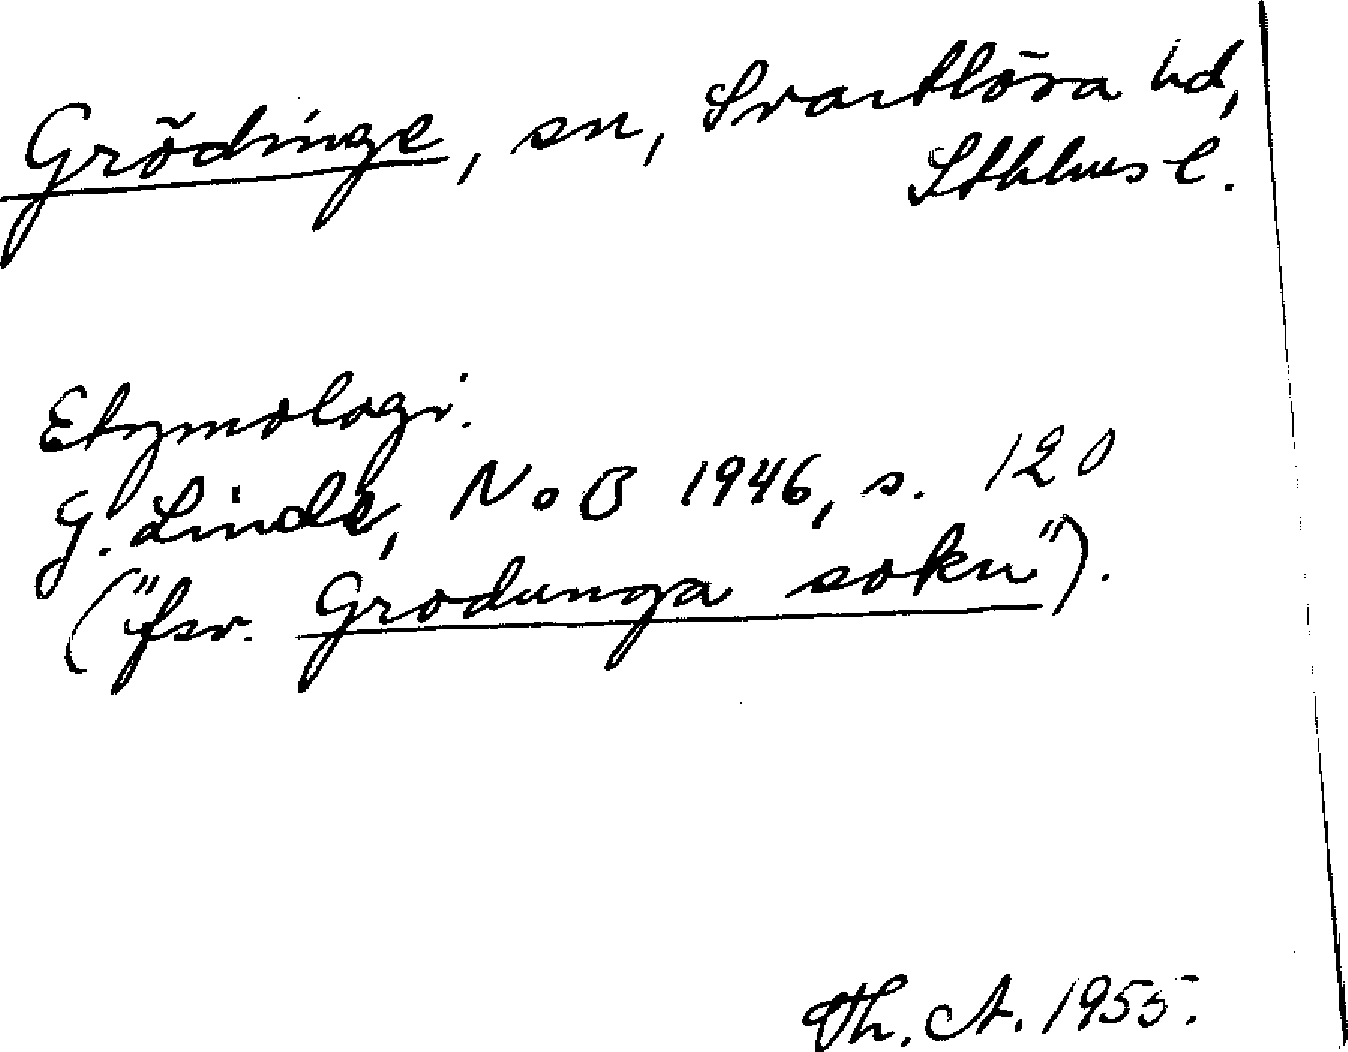 Grödinge, sn, Svartlösa hd,
Sthlms l.
Etymologi.
G. Linde, NoB 1946, s. 120
("fsv. Grodunga sokn").
Th. A. 1955.